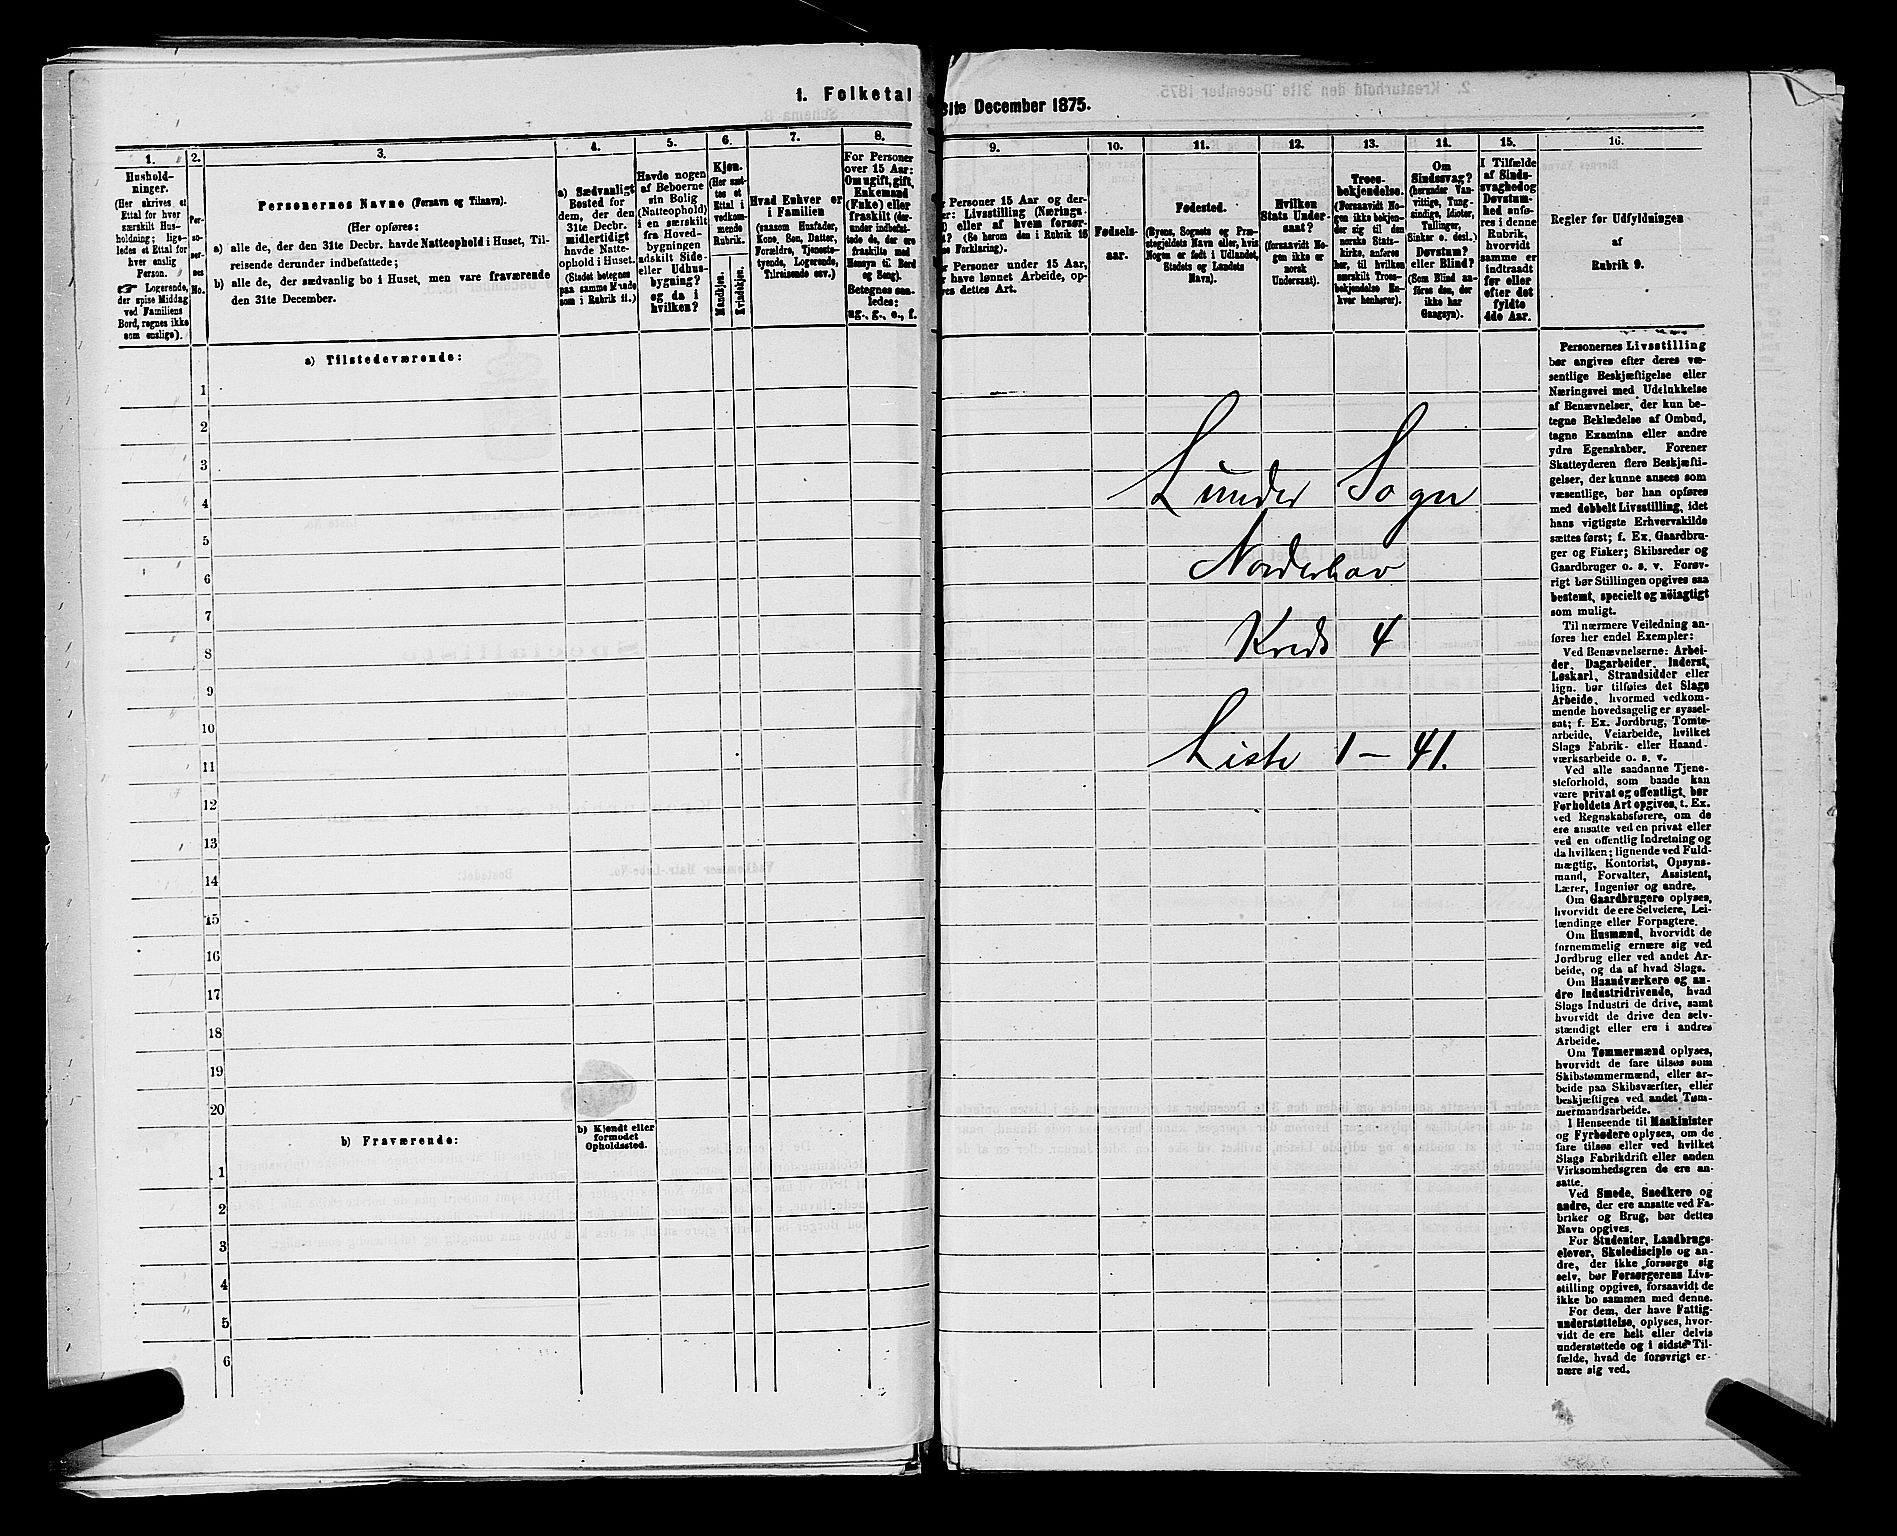 1. Folketal
31te December 1875.
1.
Hushold-
ninger.
(Her skrives et
Ettal for hver
særskilt Hus-
holdning; lige-
ledes et Ettal for
hver enslig
Person.
☞ Logerende,
der spise Middag
ved Familiens
Bord, regnes ikke
som enslige).
2.
Per-
so-
ner-
nes
No.
3.
Personernes Navne (Fornavn og Tilnavn).
(Her opføres:
a) alle de, der den 31te Decbr. havde Natteophold i Huset, Til-
reisende derunder indbefattede;
b) alle de, der sædvanlig bo i Huset, men vare fraværende
den 31te December.
4.
a) Sædvanligt
Bosted for
dem, der den
31te Decbr.
midlertidigt
havde Natte-
ophold i Huset.
(Stedet betegnes
paa samme Maade
som i Rubrik 11.)
5.
Havde nogen
af Beboerne
sin Bolig
(Natteophold)
i en særskilt
fra Hoved-
bygningen
adskilt Side-
eller Udhus-
bygning?
og da i
hvilken?
6.
Kjøn.
(Her sæt-
tes et
Ettal i
vedkom-
mende
Rubrik.
Mandkjøn.
Kvindekjøn.
7.
Hvad Enhver er
i Familien
(saasom Husfader,
Kone, Søn, Datter,
Forældre, Tjeneste-
tyende, Logerende,
Tilreisende osv.)
8.
For Personer
over 15 Aar:
Om ugift, gift,
Enkemand
(Enke) eller
fraskilt (der-
under indbefat-
tede de, der ere
fraskilte med
Hensyn til Bord
og Seng).
Betegnes saa-
ledes:
ug., g., e., f.
9.
Personer 15 Aar og der-
er: Livsstilling (Nærings-
) eller af hvem forsør-
? (Se herom den i Rubrik 16
Forklaring).
Personer under 15 Aar,
have lønnet Arbeide, op-
es dettes Art.
10.
Fødsels-
aar.
11.
Fødested.
(Byens, Sognets og Præ-
stegjeldets Navn eller, hvis
Nogen er født i Udlandet,
Stedets og Landets
Navn).
12.
Hvilken
Stats Under-
saat?
(forsaavidt No-
gen ikke er
norsk
Undersaat).
13.
Troes-
bekjendelse.
(Forsaavidt No-
gen ikke bekjen-
der sig til den
norske Stats-
kirke, anføres
her, til hvilken
særskilt Troes-
bekjendelse En-
hver henhører).
14.
Om
Sindssvag?
(herunder Van-
vittige, Tung-
sindige, Idioter,
Tullinger,
Sinker o. desl.)
Døvstum?
eller Blind?
(Som Blind an-
føres den, der
ikke har
Gangsyn).
15.
I Tilfælde
af Sinds-
svaghed og
Døvstum-
hed anfø-
res i denne
Rubrik,
hvorvidt
samme er
indtraadt
før eller
efter det
fyldte
4de Aar.
16.
Regler for Udfyldningen
af
Rubrik 9.
a) Tilstedeværende:
1
2
3
4
5
6
7
8
9
10
11
12
13
14
15
16
17
18
19
20
b) Fraværende:
b) Kjendt eller
formodet
Opholdssted.
1
2
3
4
5
6
Lunder Sogn
Norderhov
Kreds 4
Liste 1 – 41.
Personernes Livsstilling
bør angives efter deres væ-
sentlige Beskjæftigelse eller
Næringsvei med Udelukkelse
af Benævnelser, der kun be-
tegne Beklædelse af Ombud,
tagne Examina eller andre
ydre Egenskaber. Forener
Skatteyderen flere Beskjæfti-
gelser, der kunne ansees som
væsentlige, bør han opføres
med dobbelt Livsstilling, idet
hans vigtigste Erhvervskilde
sættes først; f. Ex. Gaardbru-
ger og Fisker; Skibsreder og
Gaardbruger o. s. v. Forøv-
rigt bør Stillingen opgives saa
bestemt, specielt og nöiagtigt
som muligt.
Til nærmere Veiledning an-
føres her endel Exempler:
Ved Benævnelserne: Arbei-
der, Dagarbeider, Inderst,
Løskarl, Strandsidder eller
lign. bør tilføies det Slags
Arbeide, hvormed vedkom-
mende hovedsagelig er syssel-
sat; f. Ex. Jordbrug, Tomte-
arbeide, Veiarbeide, hvilket
Slags Fabrik- eller Haand-
værksarbeide o. s. v.
Ved alle saadanne Tjene-
steforhold, som baade kan
være privat og offentligt, bør
Forholdets Art opgives, t. Ex.
ved Regnskabsførere, om de
ere ansatte ved en privat eller
ved en offentlig Indretning og
da hvilken; lignende ved Fuld-
mægtig, Kontorist, Opsyns-
mand, Forvalter, Assistent,
Lærer, Ingeniør og andre.
Om Gaardbrugere oplyses,
hvorvidt de ere Selveiere, Lei-
lændinge eller Forpagtere.
Om Husmænd, hvorvidt de
fornemmelig ernære sig ved
Jordbrug eller ved andet Ar-
beide, og da af hvad Slags.
Om Haandværkere og an-
dre Industridrivende, hvad
Slags Industri de drive, samt
hvorvidt de drive den selv-
stændigt eller ere i andres
Arbeide.
Om Tømmermænd oplyses,
hvorvidt de fare tilsøs som
Skibstømmermænd, eller ar-
beide paa Skibsværfter, eller
beskjæftiges ved andet Tøm-
mermandsarbeide.
I Henseende til Maskinister
og Fyrbødere oplyses, om de
fare tilsøs eller ved hvilket
Slags Fabrikdrift eller anden
Virksomhedsgren de ere an-
satte.
Ved Smede, Snedkere og
andre, der ere ansatte ved Fa-
briker og Brug, bør dettes
Navn opgives.
For Studenter, Landbrugs-
elever, Skoledisciple og an-
dre, der ikke forsørge sig
selv, bør Forsørgerens Livs-
stilling opgives, forsaavidt de
ikke bo sammen med denne.
For dem, der have Fattig-
understøttelse, oplyses, hvor-
vidt de ere helt eller delvis
understøttede og i sidste Til-
fælde, hvad de forøvrigt er-
nære sig ved.